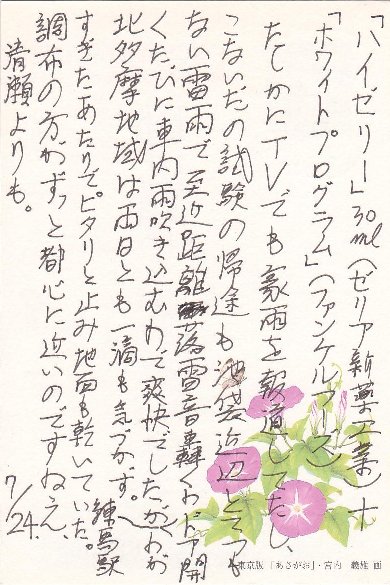 「ハイゼリー」30ml(ゼリア新薬工業)+
「ホワイトプログラム」(ファンケルブース)
たしかにTVでも豪雨を報道してたし、
こないだの試験の帰途も池袋近辺とても
ない雷雨で至近距離落雷音轟くわドア開
くたびに車内雨吹き込むわで爽快でしたがわが
北多摩地域は両日とも一滴も気づかず。練馬駅
すぎたあたりでピタリと止み地面も乾いていた。
調布の方がずっと都心に近いのですねえ、
清瀬よりも。
7/24.
東京版「あさがお」・宮内 義雄 画